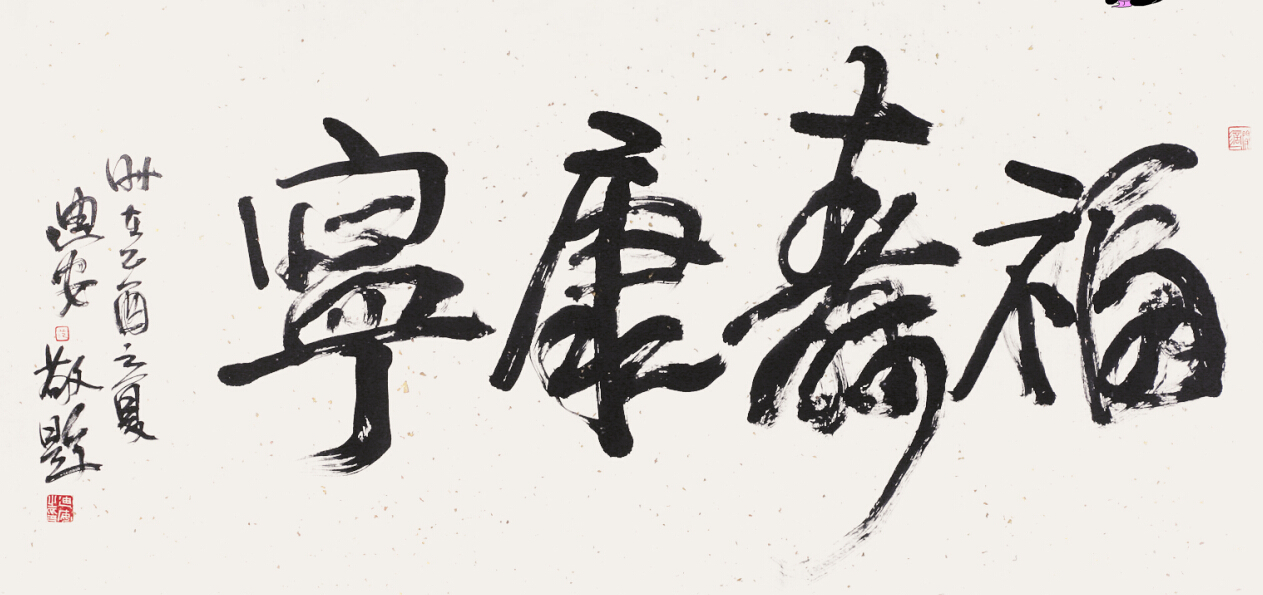 福壽康寧
時在乙酉之夏
迪安敬題